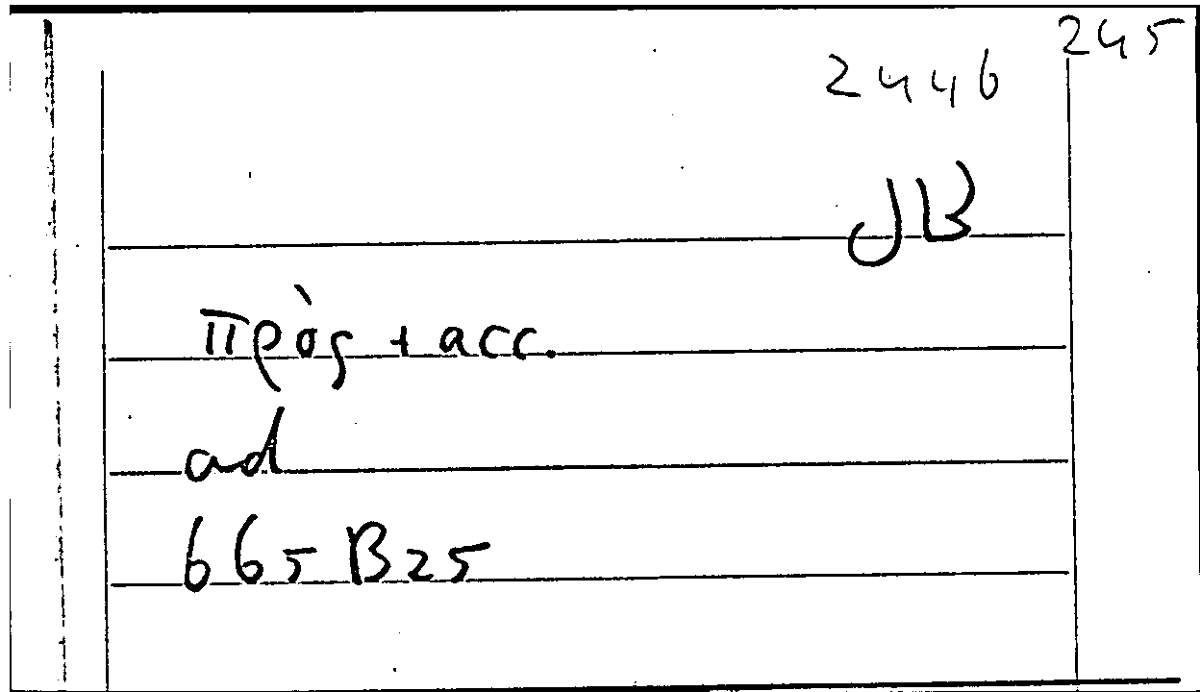 245
2446
JB
πρὸς + acc.
ad
665 B25